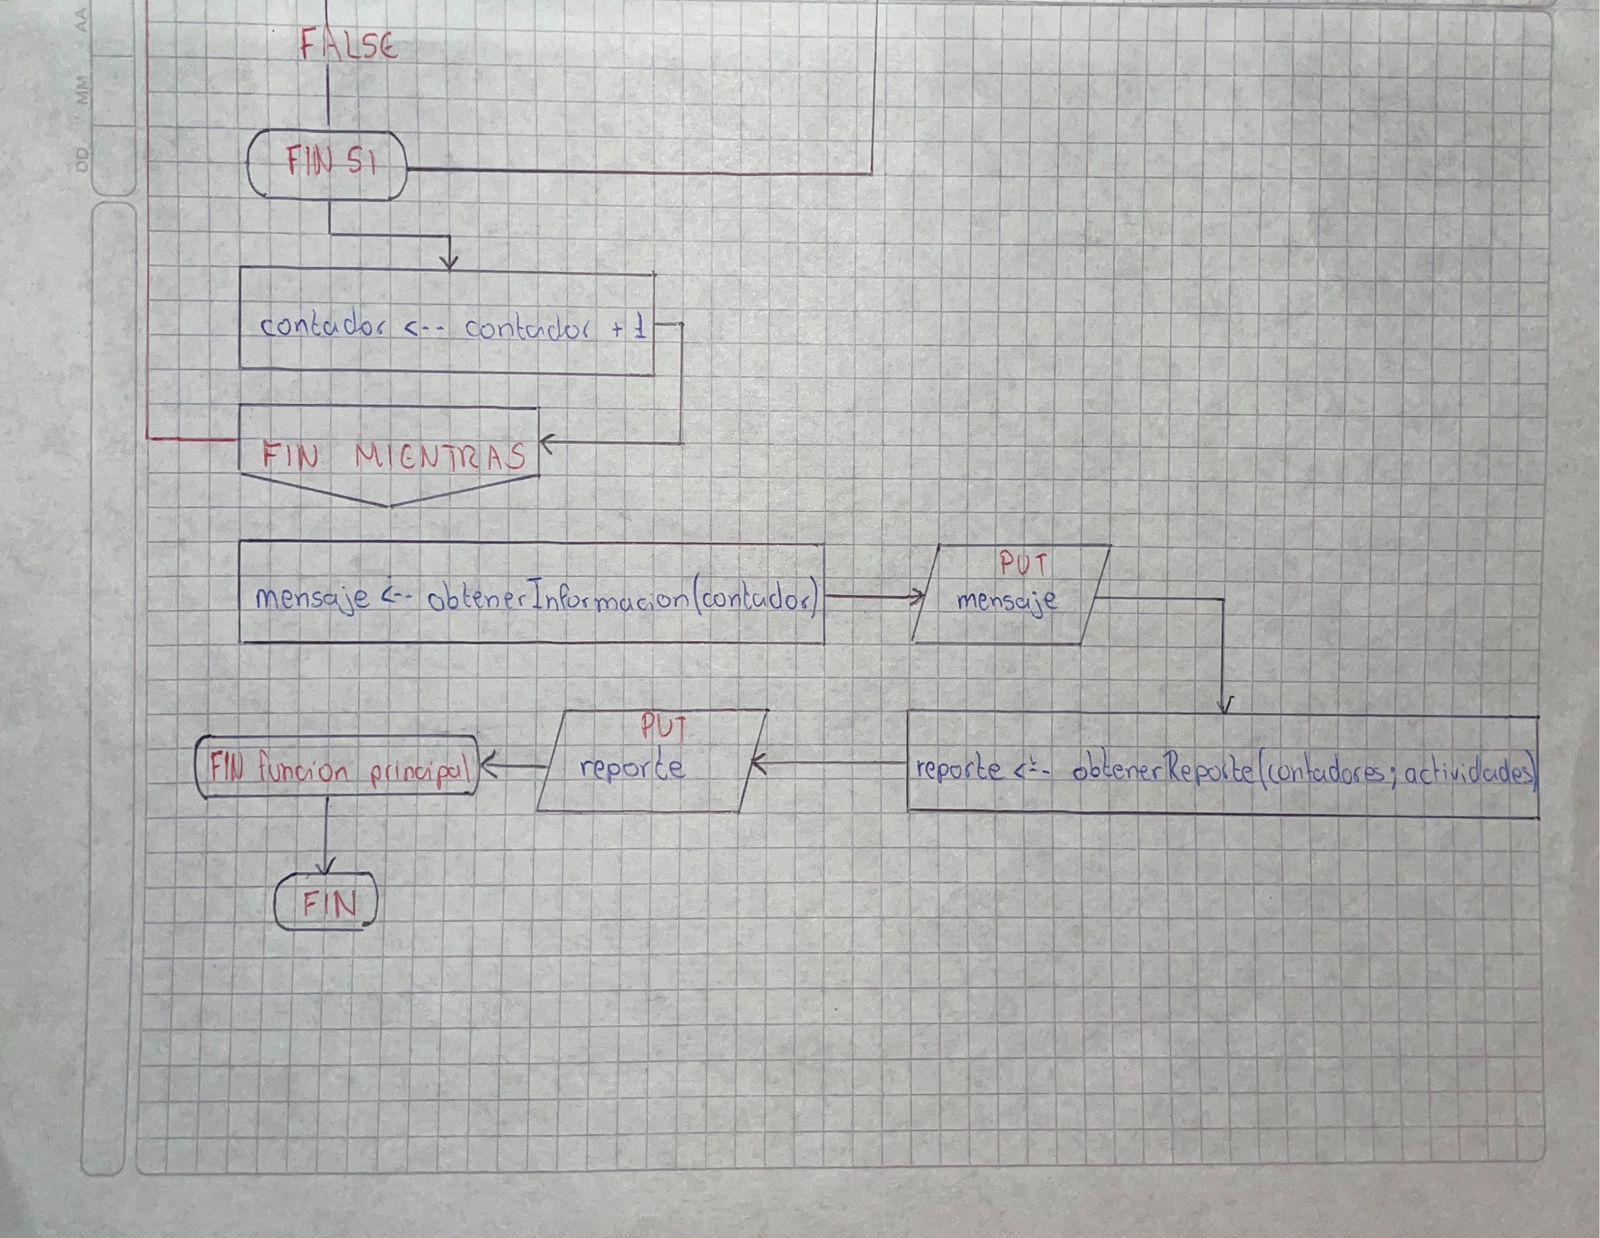 AA
MM
DD
FALSE
FIN SI
contador <-- contador + 1
FIN MIENTRAS
mensaje <-- obtenerInformacion(contador)
PUT
mensaje
reporte <-- obtenerReporte(contadores; actividades)
PUT
reporte
FIN funcion principal
FIN